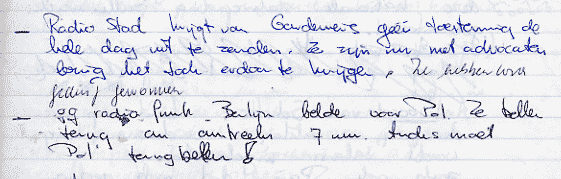 — Radio Stad krijgt van Gardeniers geen toestemming de
hele dag uit te zenden. Ze zijn nu met advocaten
bezig het toch erdoor te krijgen. Ze hebben
geding gewonnen
— radio funk Berlijn belde voor Pol. Ze bellen
terug om omtreeks 7 uur. Anders moet
Pol terugbellen !